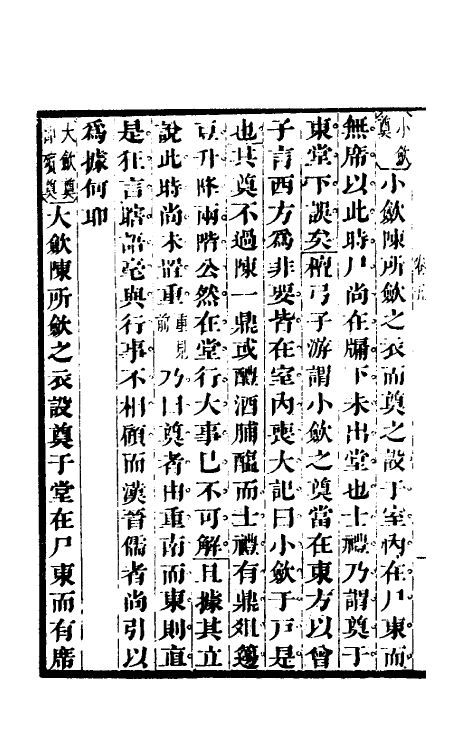 小歛奠
小歛陳所歛之衣而奠之設于室內在尸東而
無席以此時尸尚在牖下未出堂也士禮乃謂奠于
東堂下誤矣檀弓子游謂小歛之奠當在東方以曾
子言西方爲非要皆在室內喪大記曰小歛于戸是
也其奠不過陳一鼎或醴酒脯醢而士禮有鼎俎籩
豆升降兩階公然在堂行大事已不可解且據其立
說此時尚未置重重見前乃曰奠者由重南而東則直
是狂言瞎語毫與行事不相顧而漢晉儒者尚引以
爲據何耶
大歛奠即殯奠
大歛陳所歛之衣設奠于堂在尸東而有席
卷五